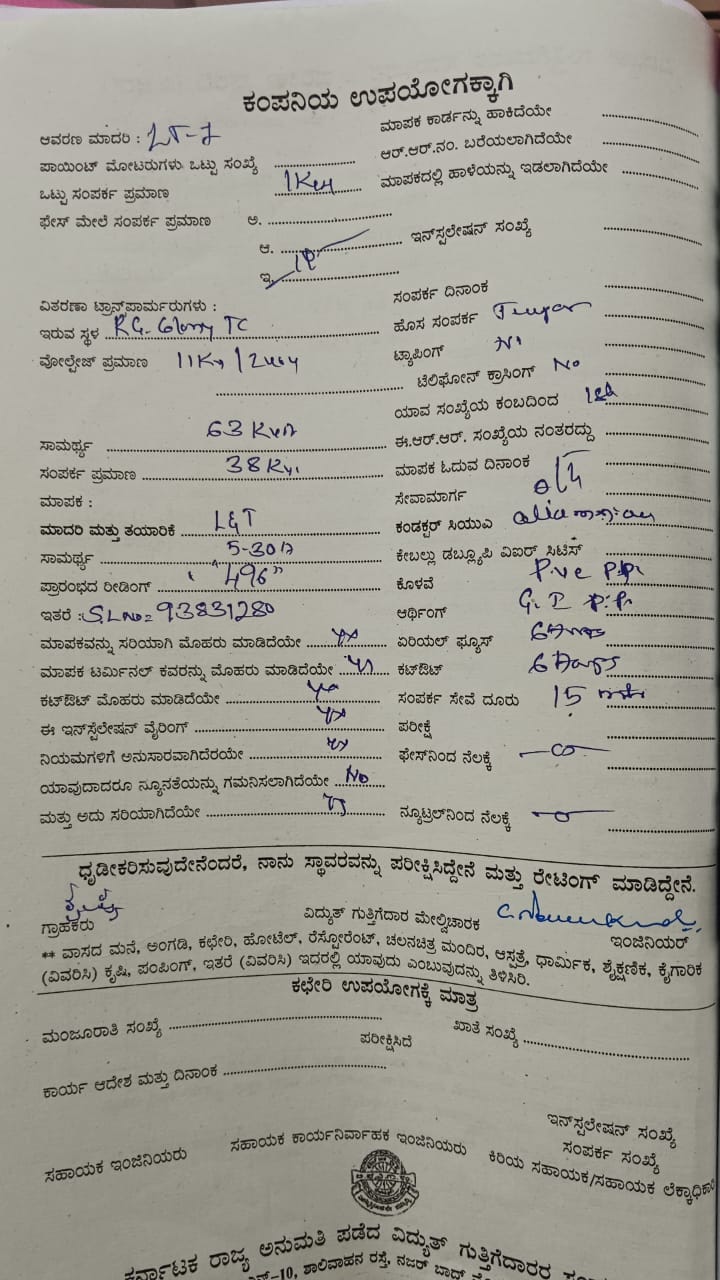 ಕಂಪನಿಯ ಉಪಯೋಗಕ್ಕಾಗಿ
ಆವರಣ ಮಾದರಿ : LT-7
ಮಾಪಕ ಕಾರ್ಡನ್ನು ಹಾಕಿದೆಯೇ
ಪಾಯಿಂಟ್ ಮೋಟರುಗಳು ಒಟ್ಟು ಸಂಖ್ಯೆ
ಆರ್.ಆರ್.ನಂ. ಬರೆಯಲಾಗಿದೆಯೇ
ಒಟ್ಟು ಸಂಪರ್ಕ ಪ್ರಮಾಣ
ಮಾಪಕದಲ್ಲಿ ಹಾಳೆಯನ್ನು ಇಡಲಾಗಿದೆಯೇ
ಫೇಸ್ ಮೇಲೆ ಸಂಪರ್ಕ ಪ್ರಮಾಣ ಅ.
ಆ. ಇನ್‌ಸ್ಟಲೇಷನ್ ಸಂಖ್ಯೆ
ಇ. 1P
ಸಂಪರ್ಕ ದಿನಾಂಕ
ವಿತರಣಾ ಟ್ರಾನ್ಸ್‌ಪಾರ್ಮರುಗಳು :
ಇರುವ ಸ್ಥಳ RG. Glory TC
ಹೊಸ ಸಂಪರ್ಕ
ವೋಲ್ಟೇಜ್ ಪ್ರಮಾಣ
ಟ್ಯಾಪಿಂಗ್
ಟೆಲಿಫೋನ್ ಕ್ರಾಸಿಂಗ್ No
ಯಾವ ಸಂಖ್ಯೆಯ ಕಂಬದಿಂದ
ಸಾಮರ್ಥ್ಯ 63 KVA
ಈ.ಆರ್.ಆರ್. ಸಂಖ್ಯೆಯ ನಂತರದ್ದು
ಸಂಪರ್ಕ ಪ್ರಮಾಣ
ಮಾಪಕ ಓದುವ ದಿನಾಂಕ
ಮಾಪಕ :
ಸೇವಾಮಾರ್ಗ
ಮಾದರಿ ಮತ್ತು ತಯಾರಿಕೆ L&T
ಕಂಡಕ್ಟರ್ ಸಿಯುಎ
ಸಾಮರ್ಥ್ಯ 5-30A
ಕೇಬಲ್ಲು ಡಬ್ಲ್ಯೂಪಿ ವಿಐರ್ ಸಿಟಿಸ್
ಪ್ರಾರಂಭದ ರೀಡಿಂಗ್ "496"
ಕೊಳವೆ
ಇತರೆ : SL No = 93831280
ಆರ್ಥಿಂಗ್
ಮಾಪಕವನ್ನು ಸರಿಯಾಗಿ ಮೊಹರು ಮಾಡಿದೆಯೇ
ಏರಿಯಲ್ ಫ್ಯೂಸ್ 6 Amps
ಮಾಪಕ ಟರ್ಮಿನಲ್ ಕವರನ್ನು ಮೊಹರು ಮಾಡಿದೆಯೇ
ಕಟ್‌ಔಟ್ 6 Amps
ಕಟ್‌ಔಟ್ ಮೊಹರು ಮಾಡಿದೆಯೇ
ಸಂಪರ್ಕ ಸೇವೆ ದೂರು
ಈ ಇನ್‌ಸ್ಟಲೇಷನ್ ವೈರಿಂಗ್
ಪರೀಕ್ಷೆ
ನಿಯಮಗಳಿಗೆ ಅನುಸಾರವಾಗಿದೆರಯೇ
ಫೇಸ್‌ನಿಂದ ನೆಲಕ್ಕೆ
ಯಾವುದಾದರೂ ನ್ಯೂನತೆಯನ್ನು ಗಮನಿಸಲಾಗಿದೆಯೇ No
ಮತ್ತು ಅದು ಸರಿಯಾಗಿದೆಯೇ
ನ್ಯೂಟ್ರಲ್‌ನಿಂದ ನೆಲಕ್ಕೆ
ಧೃಡೀಕರಿಸುವುದೇನೆಂದರೆ, ನಾನು ಸ್ಥಾವರವನ್ನು ಪರೀಕ್ಷಿಸಿದ್ದೇನೆ ಮತ್ತು ರೇಟಿಂಗ್ ಮಾಡಿದ್ದೇನೆ.
ಗ್ರಾಹಕರು ವಿದ್ಯುತ್ ಗುತ್ತಿಗೆದಾರ ಮೇಲ್ವಿಚಾರಕ ಇಂಜಿನಿಯರ್
** ವಾಸದ ಮನೆ, ಅಂಗಡಿ, ಕಛೇರಿ, ಹೋಟೆಲ್, ರೆಸ್ಟೋರೆಂಟ್, ಚಲನಚಿತ್ರ ಮಂದಿರ, ಆಸ್ಪತ್ರೆ, ಧಾರ್ಮಿಕ, ಶೈಕ್ಷಣಿಕ, ಕೈಗಾರಿಕ
(ವಿವರಿಸಿ) ಕೃಷಿ, ಪಂಪಿಂಗ್, ಇತರೆ (ವಿವರಿಸಿ) ಇದರಲ್ಲಿ ಯಾವುದು ಎಂಬುವುದನ್ನು ತಿಳಿಸಿರಿ.
ಕಛೇರಿ ಉಪಯೋಗಕ್ಕೆ ಮಾತ್ರ
ಮಂಜೂರಾತಿ ಸಂಖ್ಯೆ
ಖಾತೆ ಸಂಖ್ಯೆ
ಪರೀಕ್ಷಿಸಿದೆ
ಕಾರ್ಯ ಆದೇಶ ಮತ್ತು ದಿನಾಂಕ
ಇನ್‌ಸ್ಟಲೇಷನ್ ಸಂಖ್ಯೆ
ಸಂಪರ್ಕ ಸಂಖ್ಯೆ
ಸಹಾಯಕ ಇಂಜಿನಿಯರು ಸಹಾಯಕ ಕಾರ್ಯನಿರ್ವಾಹಕ ಇಂಜಿನಿಯರು ಕಿರಿಯ ಸಹಾಯಕ/ಸಹಾಯಕ ಲೆಕ್ಕಾಧಿಕಾ
ಕರ್ನಾಟಕ ರಾಜ್ಯ ಅನುಮತಿ ಪಡೆದ ವಿದ್ಯುತ್ ಗುತ್ತಿಗೆದಾರರ
-10, ಶಾಲಿವಾಹನ ರಸ್ತೆ, ನಜರ್ ಬಾದ್